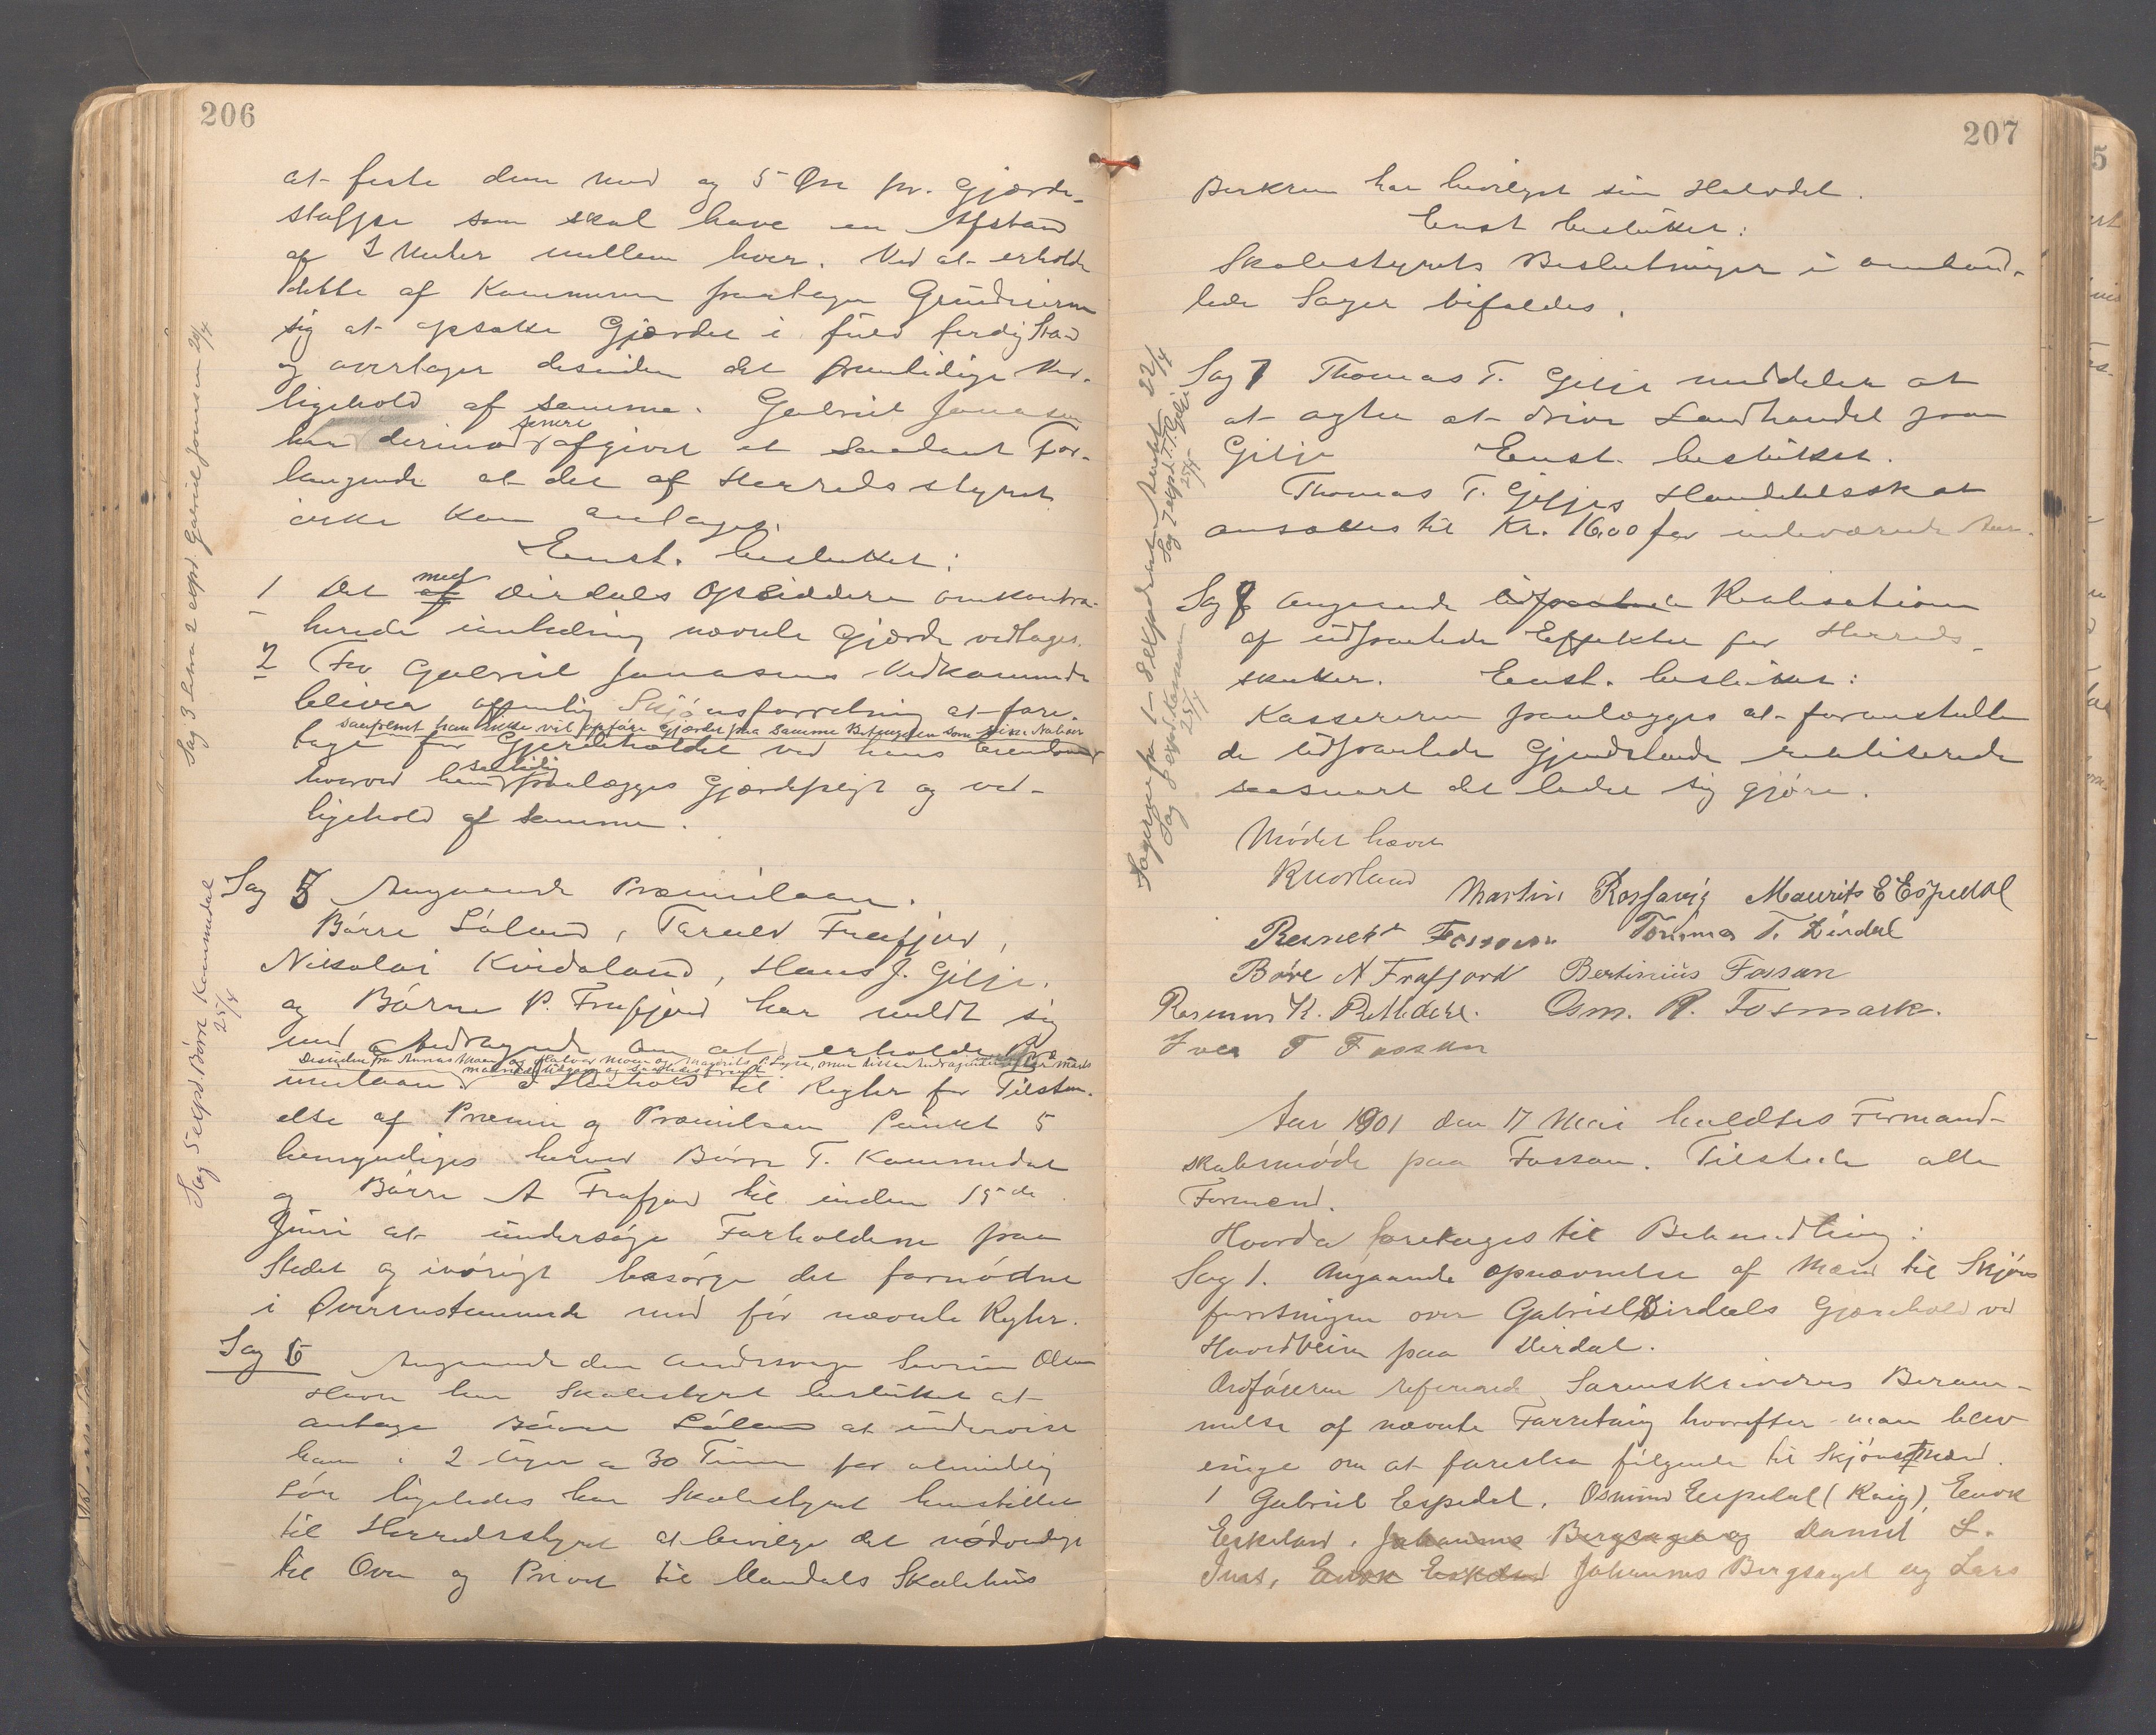 206
at feste dem med og 5 Øre pr. Gjærde-
stolppe som skal have en Afstand
af 2 Meter mellem hver. Ved at erholde
dette af Kommunen paatager Grundeierne
sig at opsætte Gjærdet i fuld ferdig Stand
og overtager desuden det fremtidige Ved-
ligehold af samme. Gabriel Jonasen
har derimod senere afgivet et saadant For-
langende at det af Herredsstyret
ikke kan antages.
Enst. besluttet:
1 Det af med Dirdals Opsiddere omkontra-
herede i anledning nævnte Gjærde vedtages.
2 For Gabriel Jonasens Vedkommende
bliver offentlig Skjønsforretning at fore-
saafremt han ikke vil opføre Gjærdet paa samme Betingelser som sine Naboer
tage for Gjerdeholdet ved hans Eiendom
hvorved ham selvfølgelig paalægges Gjærdepligt og ved-
ligehold af samme.
Sag 5 Angaaende Præmielaan.
Børre Søland, Tarald Frafjord,
Nikolai Kvidaland, Hans J. Gilje,
og Børre P. Frafjord har meldt sig
med Andragende om at erholde Præ-
mielaan. I Henhold til Regler for Tilstaa-
else af Præmie og Præmielaan Punkt 5
bemyndiges herved Børre T. Kommedal
og Børre A Frafjord til inden 15de
Juni at undersøge Forholdene paa
Stedet og iøvrigt besørge det fornødne
i Overensstemmende med før nævnte Regler.
Sag 6 Angaaende den aandssvage Severin Olsen
Haver har Skolestyret besluttet at
antage Børre Søland at undervise
ham i 2 Uger a 30 Timer for almindelig
Løn ligeledes har Skolestyret henstillet
til Herredsstyret at bevilge det nødvendige
til Ovn og Privet til Maudals Skolehus
Sag 3 Litra 2 expd. Gabriel Jonsen 20/4
Sag 5 expd. Børre Kommedal
25/4
207
Berkrem har bevilget sin Halvdel.
Enst besluttet:
Skolestyrets Beslutninger i omhand-
lede Sager bifaldes.
Sag 7 Thomas T. Gilje meddeler at
at agter at drive Landhandel paa
Gilje Enst. besluttet.
Thomas T. Giljes Handelsskat
ansættes til Kr. 16,00 for indeværende Aar.
Sag 8 angaaende udpantede Realisationen
af udpantede Effekter for Herreds-
skatter. Enst. besluttet:
Kassereren paalægges at foranstalte
de udpantede Gjendstande realiserede
saasnart det lader sig gjøre.
Mødet hævet
Martin Rossavig Maurits E Espedal
Tønnes T. Dirdal
Børe A Frafjord Bertinius Fossan
Rasmus K. Osm. R. Fosmark.
Iver T Fossan
Sag 7 expd T. T. Gilje
25/4
22/4
25/4
Aar 1901 den 17 Mai holdtes Formand-
skabsmøde paa Fossan. Tilstede alle
Formænd.
Hvorda foretoges til Behandling:
Sag 1. Angaaende opnævnelse af Mænd til Skjøns
forretningen over Gabriel Dirdals Gjærehold ved
Hovedveien paa Dirdal.
Ordføreren refererede Sorenskriverens Beram-
melse af nævnte Forretning hvorefter man blev
enige om at foreslaa følgende til Skjønsmænd.
1 Gabriel Espedal, Osmund Espedal (Raig), Enok
Eskeland, Johannes Bergsagel og Daniel L.
Tust, Enok Eskeland Johannes Bergsagel og Lars